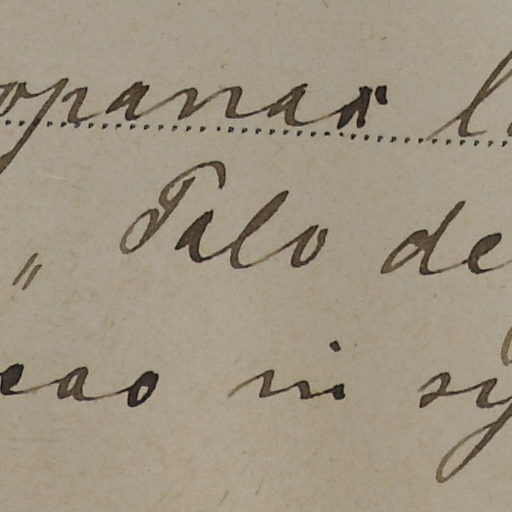 opanax l
„ Palo de
cao in sy